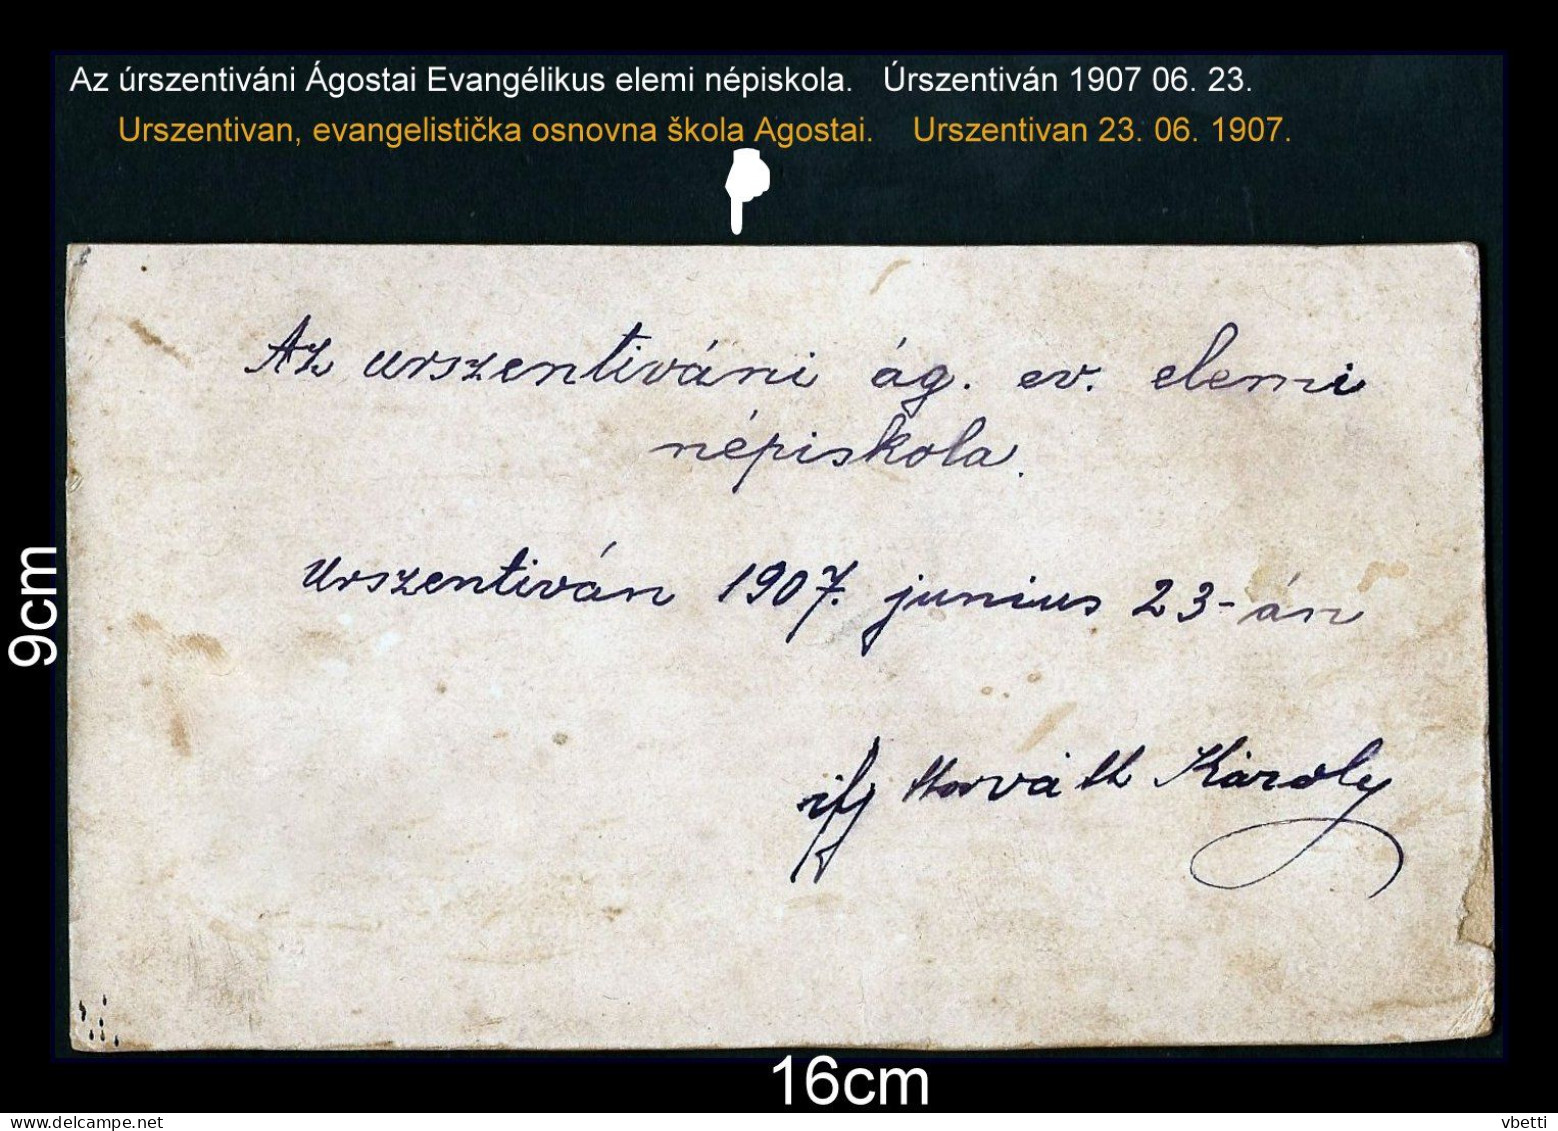 Az úrszentiváni Ágostai Evangélikus elemi népiskola. Úrszentiván 1907 06. 23.
Urszentivan, evangelistička osnovna škola Agostai. Urszentivan 23. 06. 1907.
Az urszentiváni ág. ev. elemi
népiskola.
Urszentiván 1907. junius 23-án
ifj Horváth Károly
9cm
16cm
www.delcampe.net
vbetti